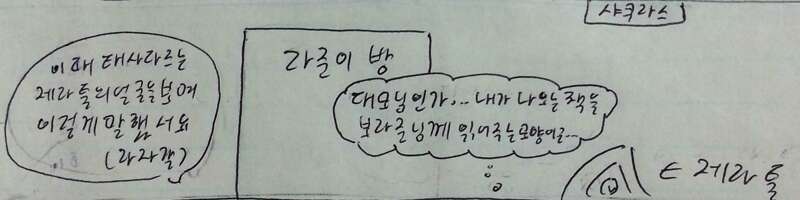 샤쿠라스
이때 태사다르는
제라툴의 얼굴을 보며
이렇게 말했서요
(라자갈)
라줄이 방
대모님인가... 내가 나오는 책을
보라준님께 읽어주는 모양이군...
← 제라툴